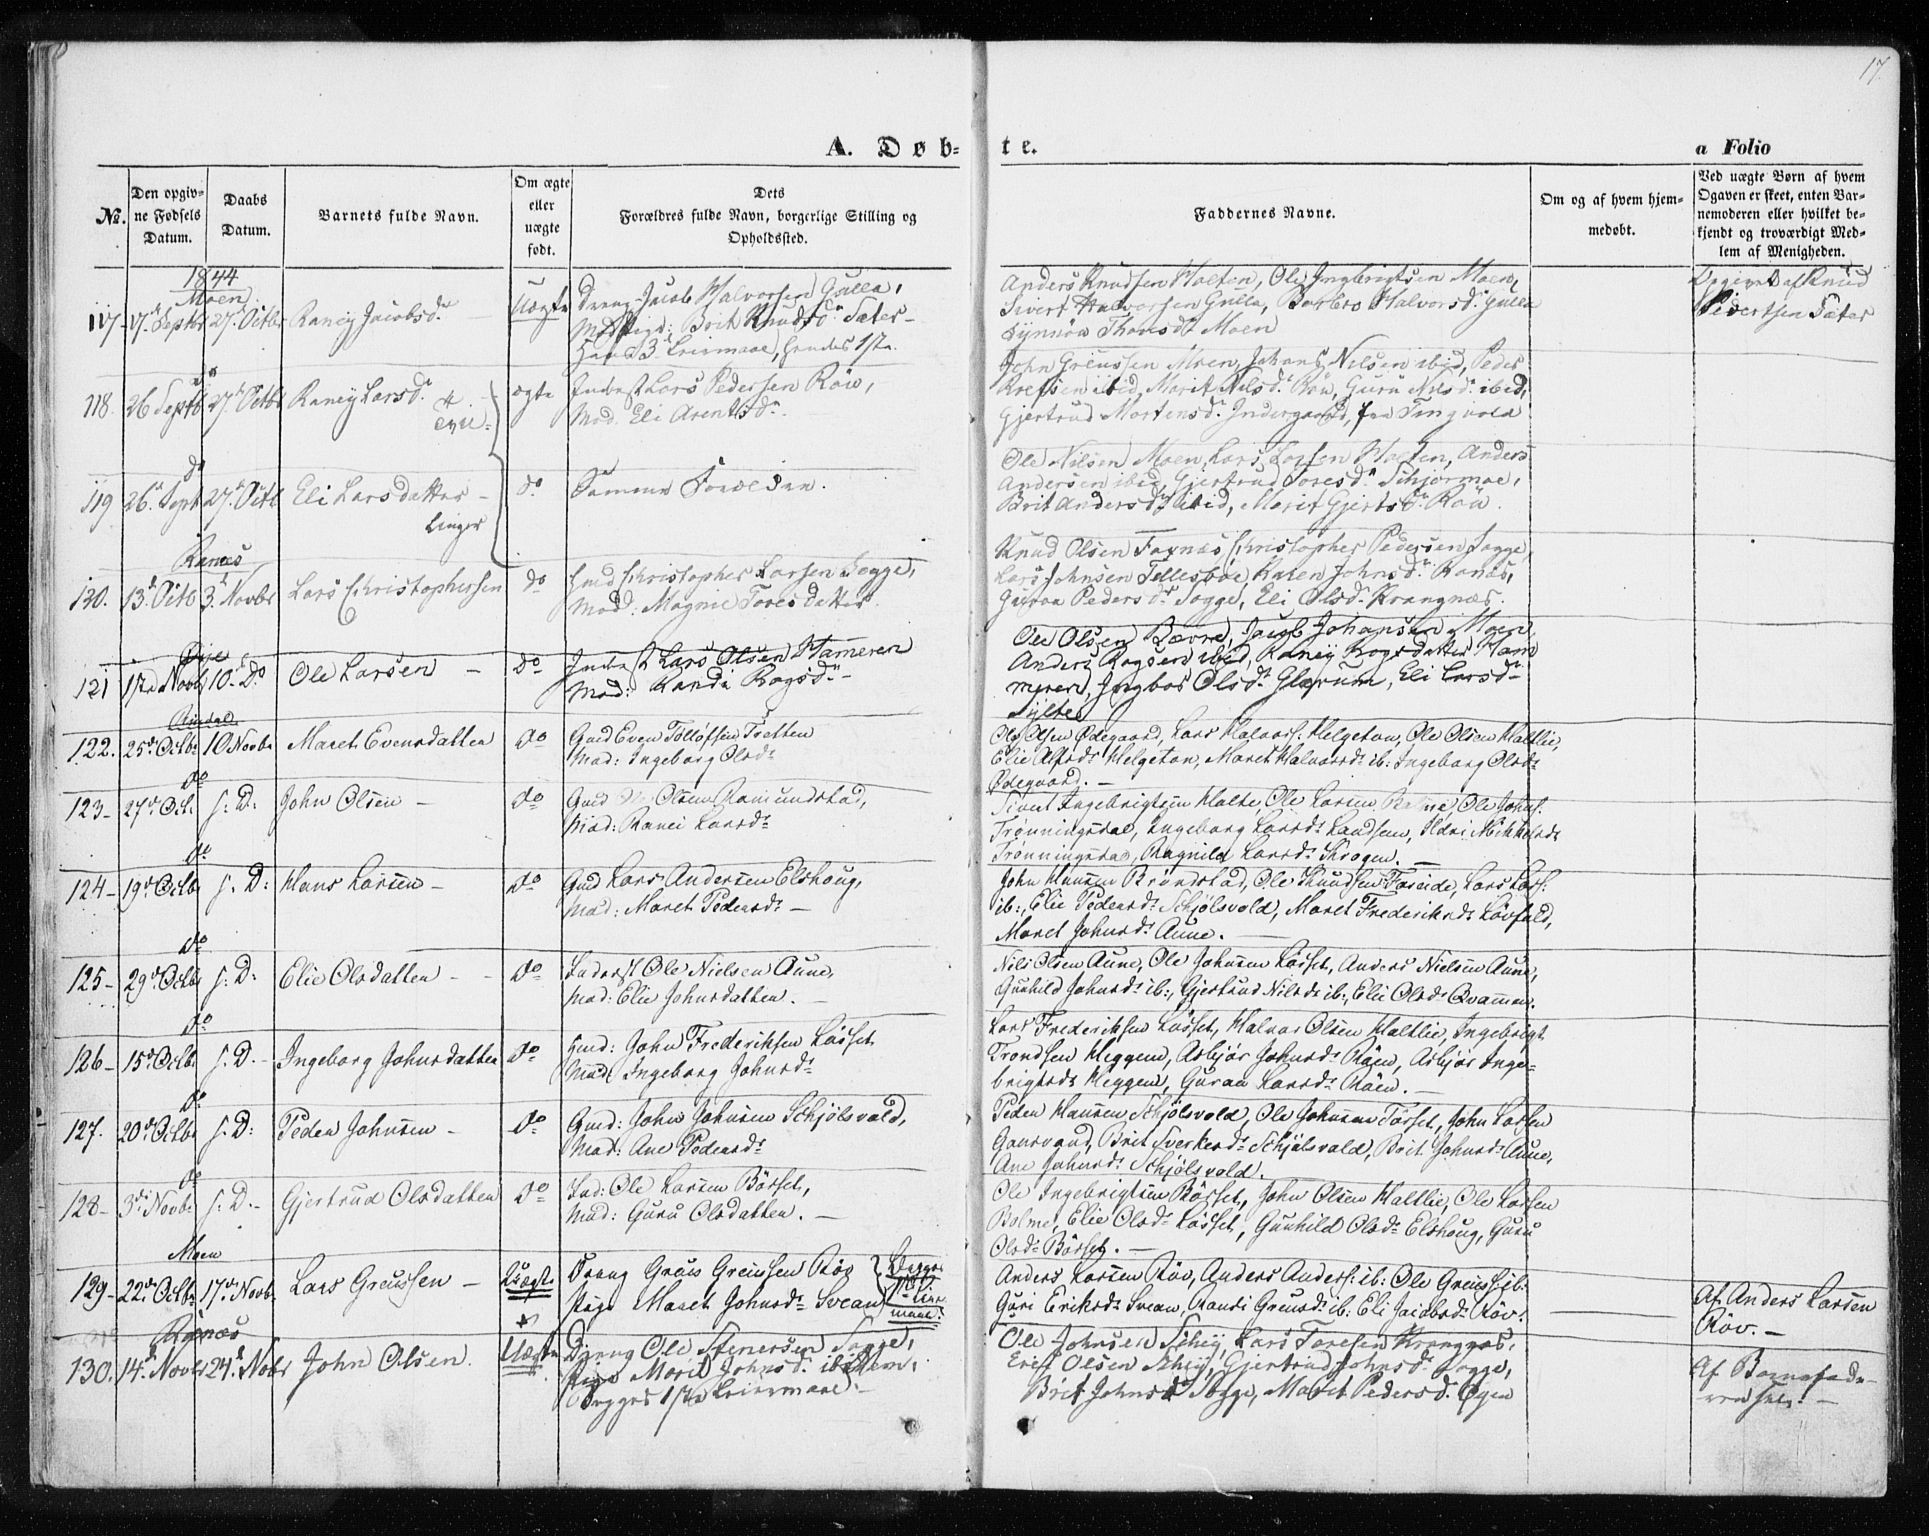 17.
A. Døb-
te.
a Folio
No.
Den opgiv-
ne Fødsels
Datum.
Daabs
Datum.
Barnets fulde Navn.
Om ægte
eller
uægte
født.
Dets
Forældres fulde Navn, borgerlige Stilling og
Opholdssted.
Faddernes Navne.
Om og af hvem hjem-
medøbt.
Ved uægte Børn af hvem
Ogaven er skeet, enten Bar-
nemoderen eller hvilket be-
kjendt og troværdigt Med-
lem af Menigheden.
1844
Moen
117. 17de Septbr 27. Octbr Raney Jacobsdr. Uægte Dreng Jacob Halvorsen Gulla,
Brit Knudsdr Sæter-
Hans 3d Leiermaal, hendes 1ste.
Anders Knudsen Holten, Ole Ingebrigtsen Moen,
Sivert Halvorsen Gulla, Barbro Halvorsdr Gulla
Synnøa Thoresdr Moen
Opgivet af Knud
Pedersen Sæter
118. 26 Septb 27. Octbr Raney Larsdr. ægte Inderst Lars Pedersen Röv,
Mod. Eli Arentsdr.
John Greussen Moen, Johans Nilsen ibid, Peder
ibid, Marit Nilsdr. Röv, Guru Nilsdr. ibid,
Gjertrud Mortensdr. Indergaard, fra Tingvold
do
119 26. Sept 27. Octb Eli Larsdatter - do Samme Forældre.
Ole Nilsen Moen, Lars Larsen Holten, Anders
Andersen ibid, Gjertrud Toresdr Schjørmoe,
Brit Andersdr ibid, Marit Gjertsdr. Röv.
Ranæs
130. 13. Octb 3. Novbr Lars Christophersen do Gmd Christopher Larsen Sogge,
Mod: Magnie Toresdatter.
Knud Olsen Foxnæs, Christopher Pedersen Sogge,
Lars Johnsen Tellesbøe, Karen Johnsdr. Ranæs,
Guroa Pedersdr Sogge, Eli Olsdr Krangnæs.
Øye
121 17de Novb 10. Do Ole Larsen - do Inderst Lars Olsen Hameren
Mod: Randi Rogsdr -
Ole Olsen Bævre, Jacob Johansen Moen,
Anders Rogsen ibid, Raneij Rogsdatter Ham
meren, Ingbor Olsdr. Glærum, Eli Larsdr
Sylte
Rindal
122. 25de Octbr 10 Novbr Maret Evensdatter do Gmd Even Tølløfsen Tretten
Mod: Ingeborg Olsdr
Ole Olsen Ødegaard, Lars Halvors. Helgeton, Ole Olsen Haltlie,
Elie Alfsdr Helgeton, Maret Halvorsdr ib: Ingeborg Olsdr
Ødegaard. -
do
123- 27de Oct. s: D: John Olsen - do Gmd Ole Olsen Romundstad,
Mod: Ranei Larsdr
Sivert Ingebrigtsen Halte, Ole Larsen, Ole Johns:
Trønningsdal, Ingeborg Larsdr Landsem, Ildri Mikkelsdr
Trønningsdal, Ragnild Larsdr Krogen. -
do
124- 19de Octbr s: D: Hans Larsen - do Gmd Lars Andersen Elshoug,
Mod: Maret Pedersdr -
John Hansen Brøndstad, Ole Knudsen Foseide, Lars Lars:
ib:, Elie Pedersdr Schjølsvold, Maret Frederiksdr Løvfald,
Maret Johnsdr Aune. -
do
125- 29de Octbr s: D: Elie Olsdatter - do Inderst Ole Nielsen Aune,
Mod: Elie Johnsdatter. -
Nils Olsen Aune, Ole Johnsen Løsset, Anders Nielsen Aune,
Gunhild Johnsdr ib:, Gjertrud Nilsdr ib:, Elie Olsdr Qvammen.
do
126- 15de Octbr s: D. - Ingeborg Johnsdatter do Gmd: John Frederiksen Løsset
Mod: Ingeborg Johnsdr
Lars Frederiksen Løsset, Halvor Olsen Haltlie, Ingebrigt
Trondsen Heggem, Asbjør Johnsdr Raen, Asbjør Inge-
brigtsdr Heggem, Guraa Larsdr Raen. -
do
127. 20de Octbr s: D: Peder Johnsen - do Gmd: John Johnsen Schjølsvold,
Mod: Ane Pedersdr
Peder Hansen Schjølsvold, Ole Johnsen Torset, John Larsen
Gaasvand, Brit Sverkesdr Schjølsvold, Brit Johnsdr Aune,
Ane Johnsdr Schjølsvold.
do
128- 3de Novbr s: D. - Gjertrud Olsdatter do Ind: Ole Larsen Børset,
Mod: Guru Olsdatter. -
Ole Ingebrigtsen Børset, John Olsen Haltlie, Ole Larsen
Bolme, Elie Olsdr Løsset, Gunhild Olsdr Elshoug, Guru
Olsdr Børset. -
Moen
129- 22de Octbr 17de Novbr Lars Greussen - Uægte Dreng Greus Greussen Röv
Pige Maret Johnsdr Svean
Begges
1ste Leier
maal.
Anders Larsen Röv, Anders Anders: ib: Ole Greuss: ib:
Guri Eriksdr Svean, Randi Greusdr ib: Eli Jacobsdr Röv.
Af Anders Larsen
Röv. -
Ranæs
130. 14. Novbr 24. Nobr John Olsen. Uægte Dreng Ole Stenersen Sogge,
Pige Marit Johnsdr. ibidem,
Begges 1ste Leiermaal. -
Ole Johnsen Schey, Lars Toresen Krangnæs,
Erik Olsen Schey, Gjertrud Johnsdr Sogge,
Brit Johnsdr Sogge, Marit Pedersdr. Øyen
Af Barnefade-
ren selv. -